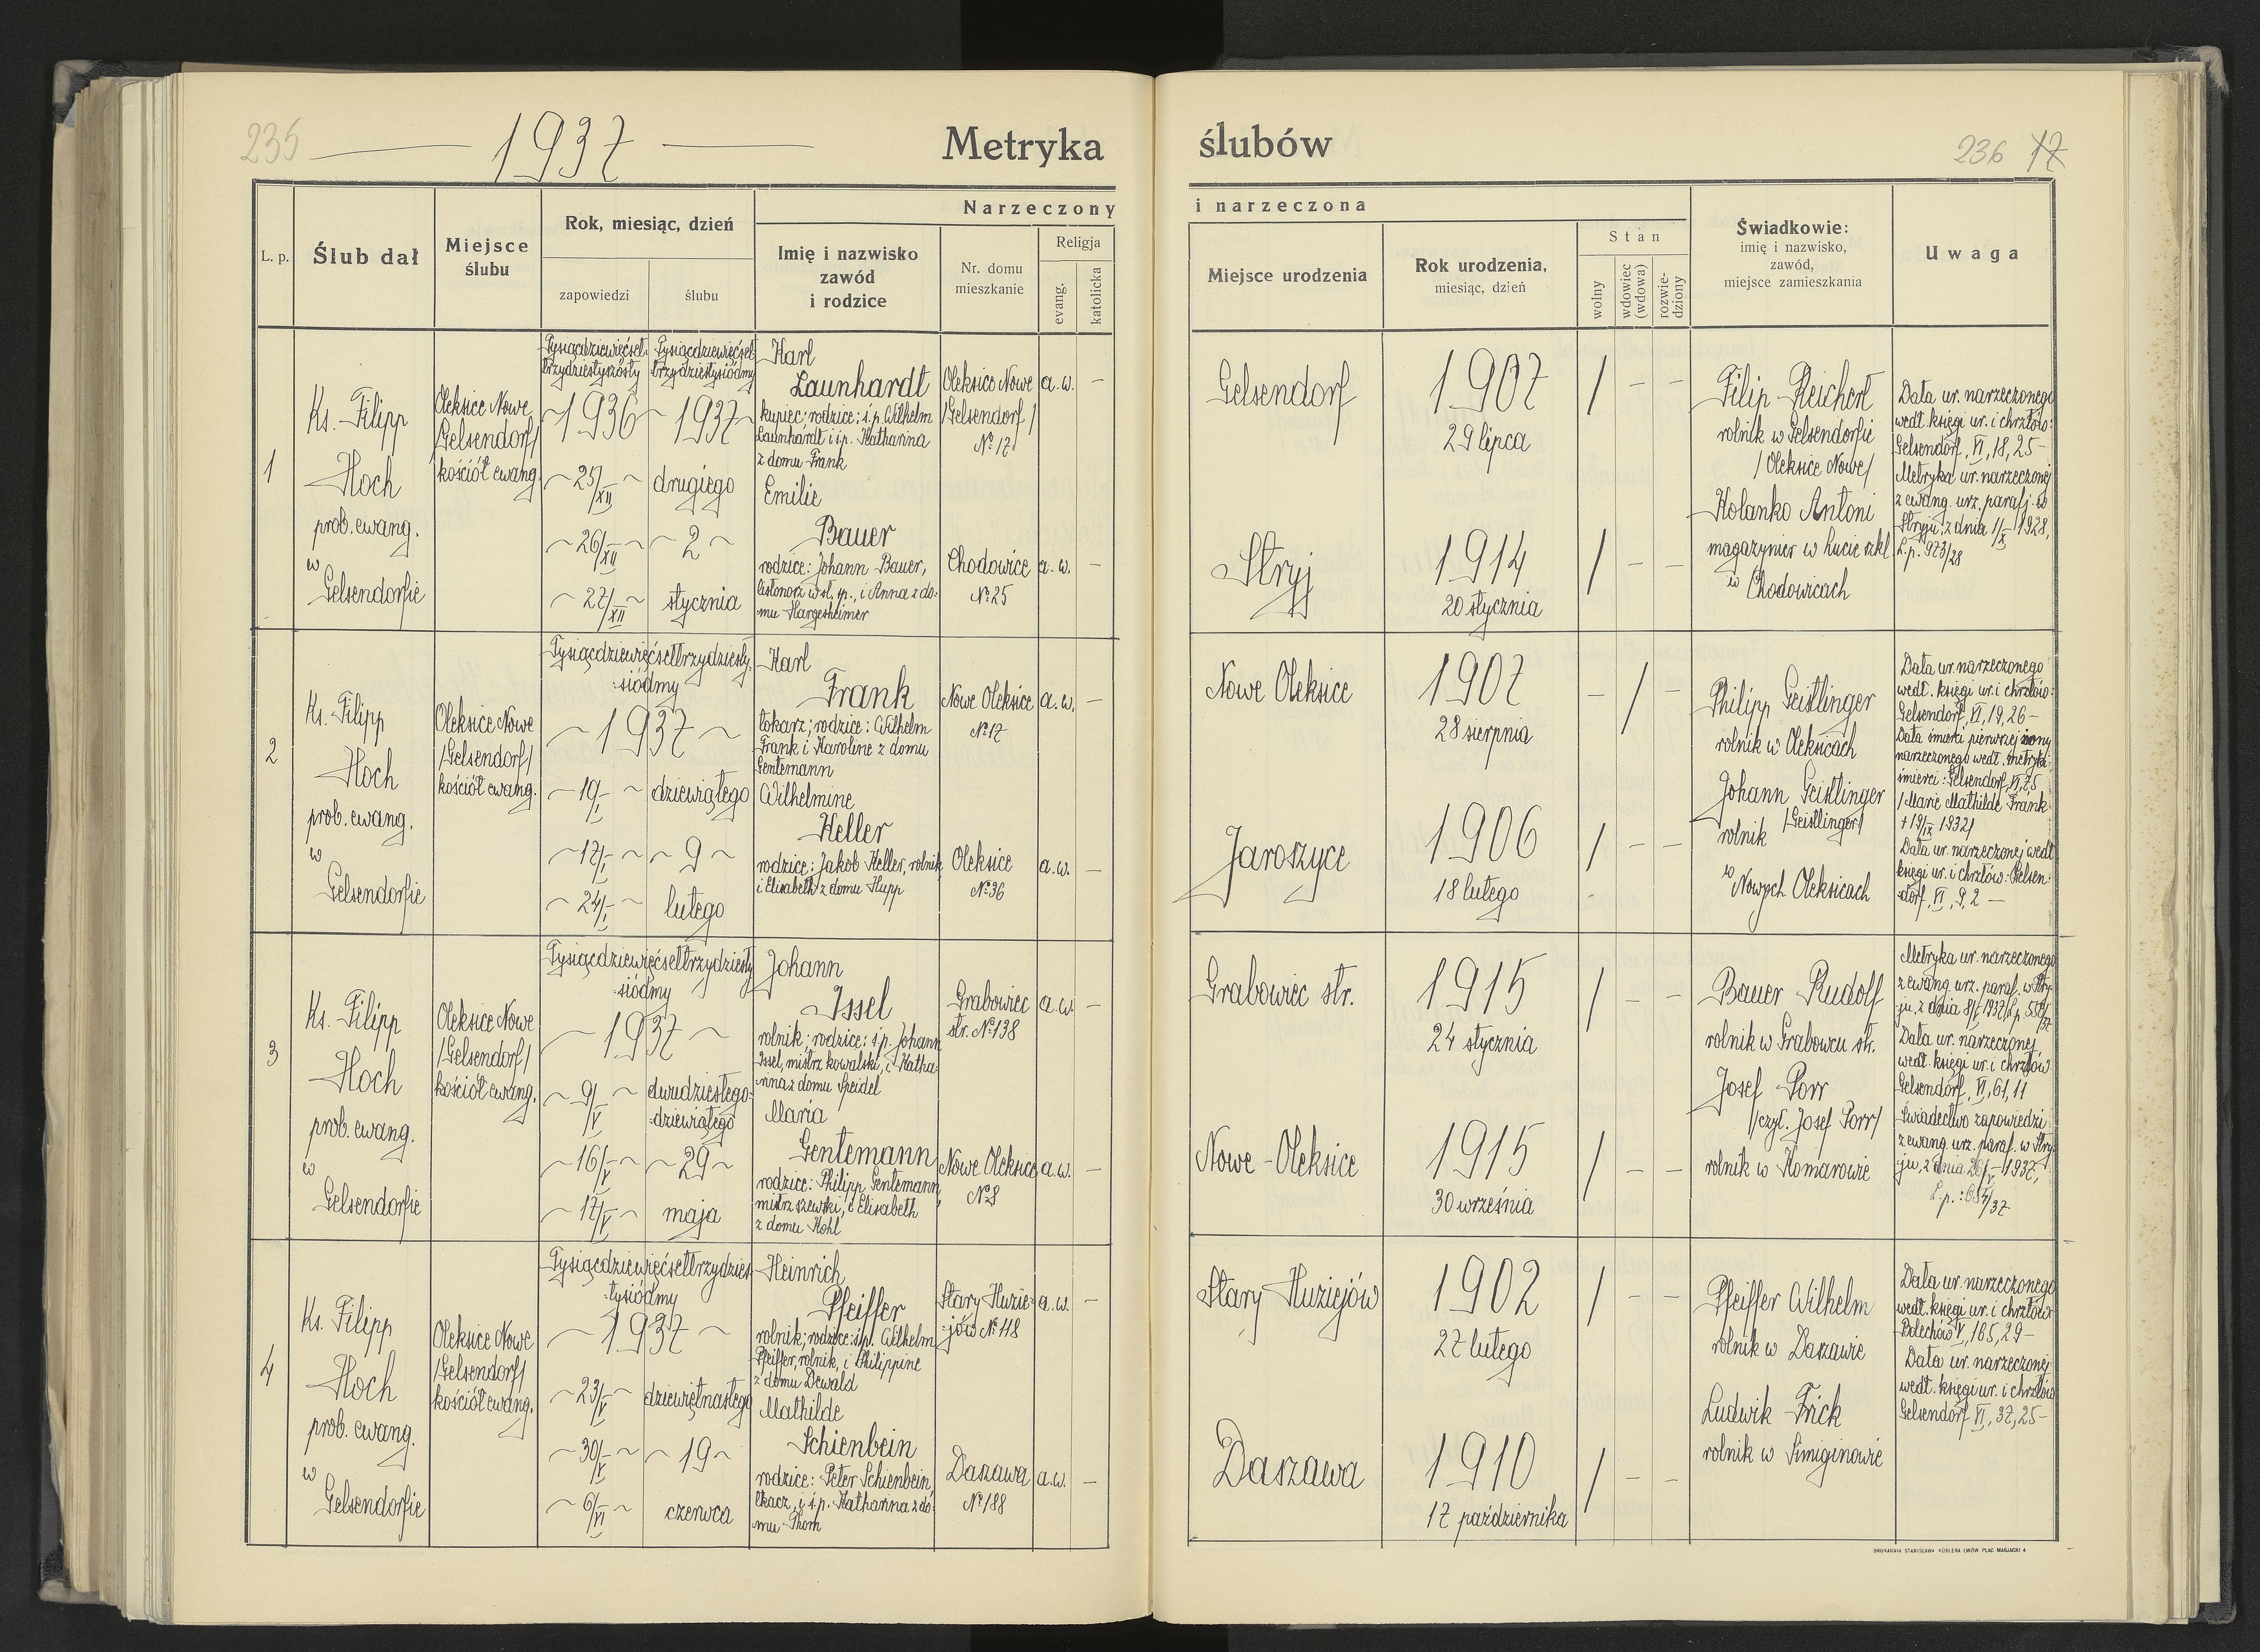 235
1937
Metryka
ślubów
236 17
L. p.
Ślub dał
Miejsce
ślubu
Rok, miesiąc, dzień
zapowiedzi
ślubu
Narzeczony
Imię i nazwisko
zawód
i rodzice
Nr. domu
mieszkanie
Religja
evang.
katolicka
i narzeczona
Miejsce urodzenia
Rok urodzenia,
miesiąc, dzień
Stan
wolny
wdowiec
(wdowa)
rozwie-
dziony
Świadkowie:
imię i nazwisko,
zawód,
miejsce zamieszkania
Uwaga
1
Ks. Filipp
Hoch
prob. ewang.
w
Gelsendorfie
Oleksice Nowe
/Gelsendorf/
kościół ewang.
Tysiącdziewięćset-
trzydziestyszósty
~1936~
~25/XII
~26/XII~
~27/XII~
Tysiącdziewięćset-
trzydziestysiódmy
1937~
drugiego
~2~
stycznia
Karl
Launhardt
kupiec; rodzice: ś.p. Wilhelm
Launhardt i ś.p. Katharina
z domu Frank
Emilie
Bauer
rodzice: Johann Bauer,
listonosz w st. sp., i Anna z do-
mu Hargesheimer
Oleksice Nowe
/Gelsendorf/
№ 17
Chodowice
№ 25
a.w. –
a.w. –
Gelsendorf
Stryj
1907
29 lipca
1914
20 stycznia
/ – –
/ – –
Filip Reichert
rolnik w Gelsendorfie
/Oleksice Nowe/
Kolanko Antoni
magazynier w hucie szkl.
w Chodowicach
Data ur. narzeczonego
wedł. księgi ur. i chrztów:
Gelsendorf, VI, 18, 25 –
Metryka ur. narzeczonej
z ewang. urz. parafj. w
Stryju, z dnia 1/X 1928,
L.p. 973/28
2
Ks. Filipp
Hoch
prob. ewang.
w
Gelsendorfie
Oleksice Nowe
/Gelsendorf/
kościół ewang.
Tysiącdziewięćsettrzydziesty-
siódmy
~1937~
~10/I~
~17/I~
~24/I~
dziewiątego
~9~
lutego
Karl
Frank
tokarz; rodzice: Wilhelm
Frank i Karoline z domu
Gentemann
Wilhelmine
Heller
rodzice: Jakob Heller, rolnik,
i Elisabeth z domu Hupp
Nowe Oleksice
№ 17
Oleksice
№ 36
a.w. –
a.w. –
Nowe Oleksice
Jaroszyce
1907
28 sierpnia
1906
18 lutego
– / –
/ – –
Philipp Geistlinger
rolnik w Oleksicach
Johann Geistlinger
/Geistlinger/
rolnik
w Nowych Oleksicach
Data ur. narzeczonego
wedł. księgi ur. i chrztów:
Gelsendorf, VI, 19, 26 –
Data śmierci pierwszej żony
narzeczonego wedł. metryki
śmierci: Gelsendorf, VI, 75
/Marie Mathilde Frank
+ 19/IX 1932/
Data ur. narzeczonej wedł.
księgi ur. i chrztów: Gelsen-
dorf, VI, 9, 2 –
3
Ks. Filipp
Hoch
prob. ewang.
w
Gelsendorfie
Oleksice Nowe
/Gelsendorf/
kościół ewang.
Tysiącdziewięćsettrzydziesty
siódmy
~1937~
~9/V~
~16/V~
~17/V~
dwudziestego-
dziewiątego
~29~
maja
Johann
Issel
rolnik; rodzice: ś.p. Johann
Issel, mistrz kowalski, i Katha-
rina z domu Speidel
Maria
Gentemann
rodzice: Philipp Gentemann,
mistrz szewski, i Elisabeth
z domu Kohl
Grabowiec
str. № 138
Nowe Oleksice
№ 8
a.w. –
a.w. –
Grabowiec str.
Nowe-Oleksice
1915
24 stycznia
1915
30 września
/ – –
/ – –
Bauer Rudolf
rolnik w Grabowcu str.
Josef Porr
/czyt. Josef Porr/
rolnik w Komarowie
Metryka ur. narzeczonego
z ewang. urz. paraf. w Stry-
ju, z dnia 8/V 1937,
Data ur. narzeczonej
wedł. księgi ur. i chrztów
Gelsendorf, VI, 61, 11
Świadectwo zapowiedzi
z ewang. urz. paraf. w Stry-
ju, z dnia 1937,
4
Ks. Filipp
Hoch
prob. ewang.
w
Gelsendorfie
Oleksice Nowe
/Gelsendorf/
kościół ewang.
Tysiącdziewięćsettrzydzies-
tysiódmy
~1937~
~23/V~
~30/V~
~6/VI~
dziewiętnastego
~19~
czerwca
Heinrich
Pfeiffer
rolnik; rodzice: ś.p. Wilhelm
Pfeiffer, rolnik, i Philippine
z domu Dewald
Mathilde
Schienbein
rodzice: Peter Schienbein,
tkacz, i ś.p. Katharina z do-
mu Thom
Stary Huzie-
jów № 118
Daszawa
№ 188
a.w. –
a.w. –
Stary Huziejów
Daszawa
1902
27 lutego
1910
17 października
/ – –
/ – –
Pfeiffer Wilhelm
rolnik w Daszawie
Ludwik Frick
rolnik w Simiginowie
Data ur. narzeczonego
wedł. księgi ur. i chrztów
Bolechów V, 165, 29 –
Data ur. narzeczonej
wedł. księgi ur. i chrztów
Gelsendorf VI, 37, 25 –
DRUKARNIA STANISŁAWA KÜBLERA LWÓW PLAC MARJACKI 4